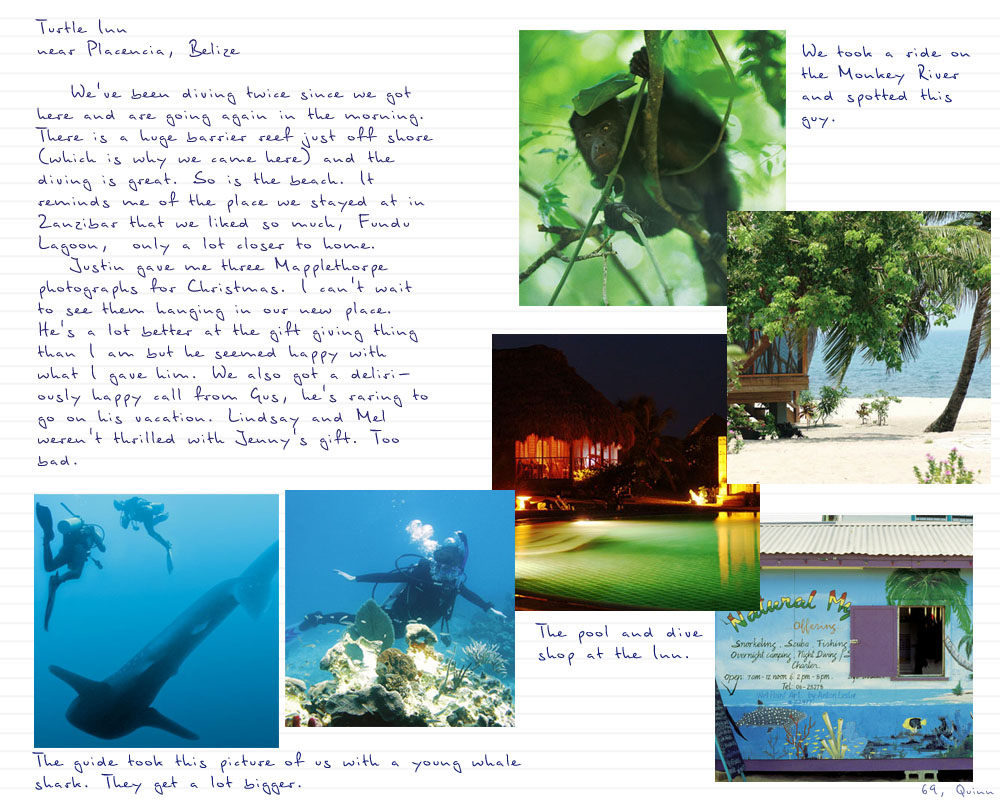 Turtle Inn
near Placencia, Belize
We've been diving twice since we got
here and are going again in the morning.
There is a huge barrier reef just off shore
(which is why we came here) and the
diving is great. So is the beach. It
reminds me of the place we stayed at in
Zanzibar that we liked so much, Fundu
Lagoon, only a lot closer to home.
Justin gave me three Mapplethorpe
photographs for Christmas. I can't wait
to see them hanging in our new place.
He's a lot better at the gift giving thing
than I am but he seemed happy with
what I gave him. We also got a deliri-
ously happy call from Gus, he's raring to
go on his vacation. Lindsay and Mel
weren't thrilled with Jenny's gift. Too
bad.
We took a ride on
the Monkey River
and spotted this
guy.
The pool and dive
shop at the Inn.
Natural My
Offering
Snorkeling, Scuba, Fishing
Overnight camping, Night Diving /
Charter
Open: 7am-12 noon & 2pm-6pm
Tel: 06-23275
The guide took this picture of us with a young whale
shark. They get a lot bigger.
69, Quinn